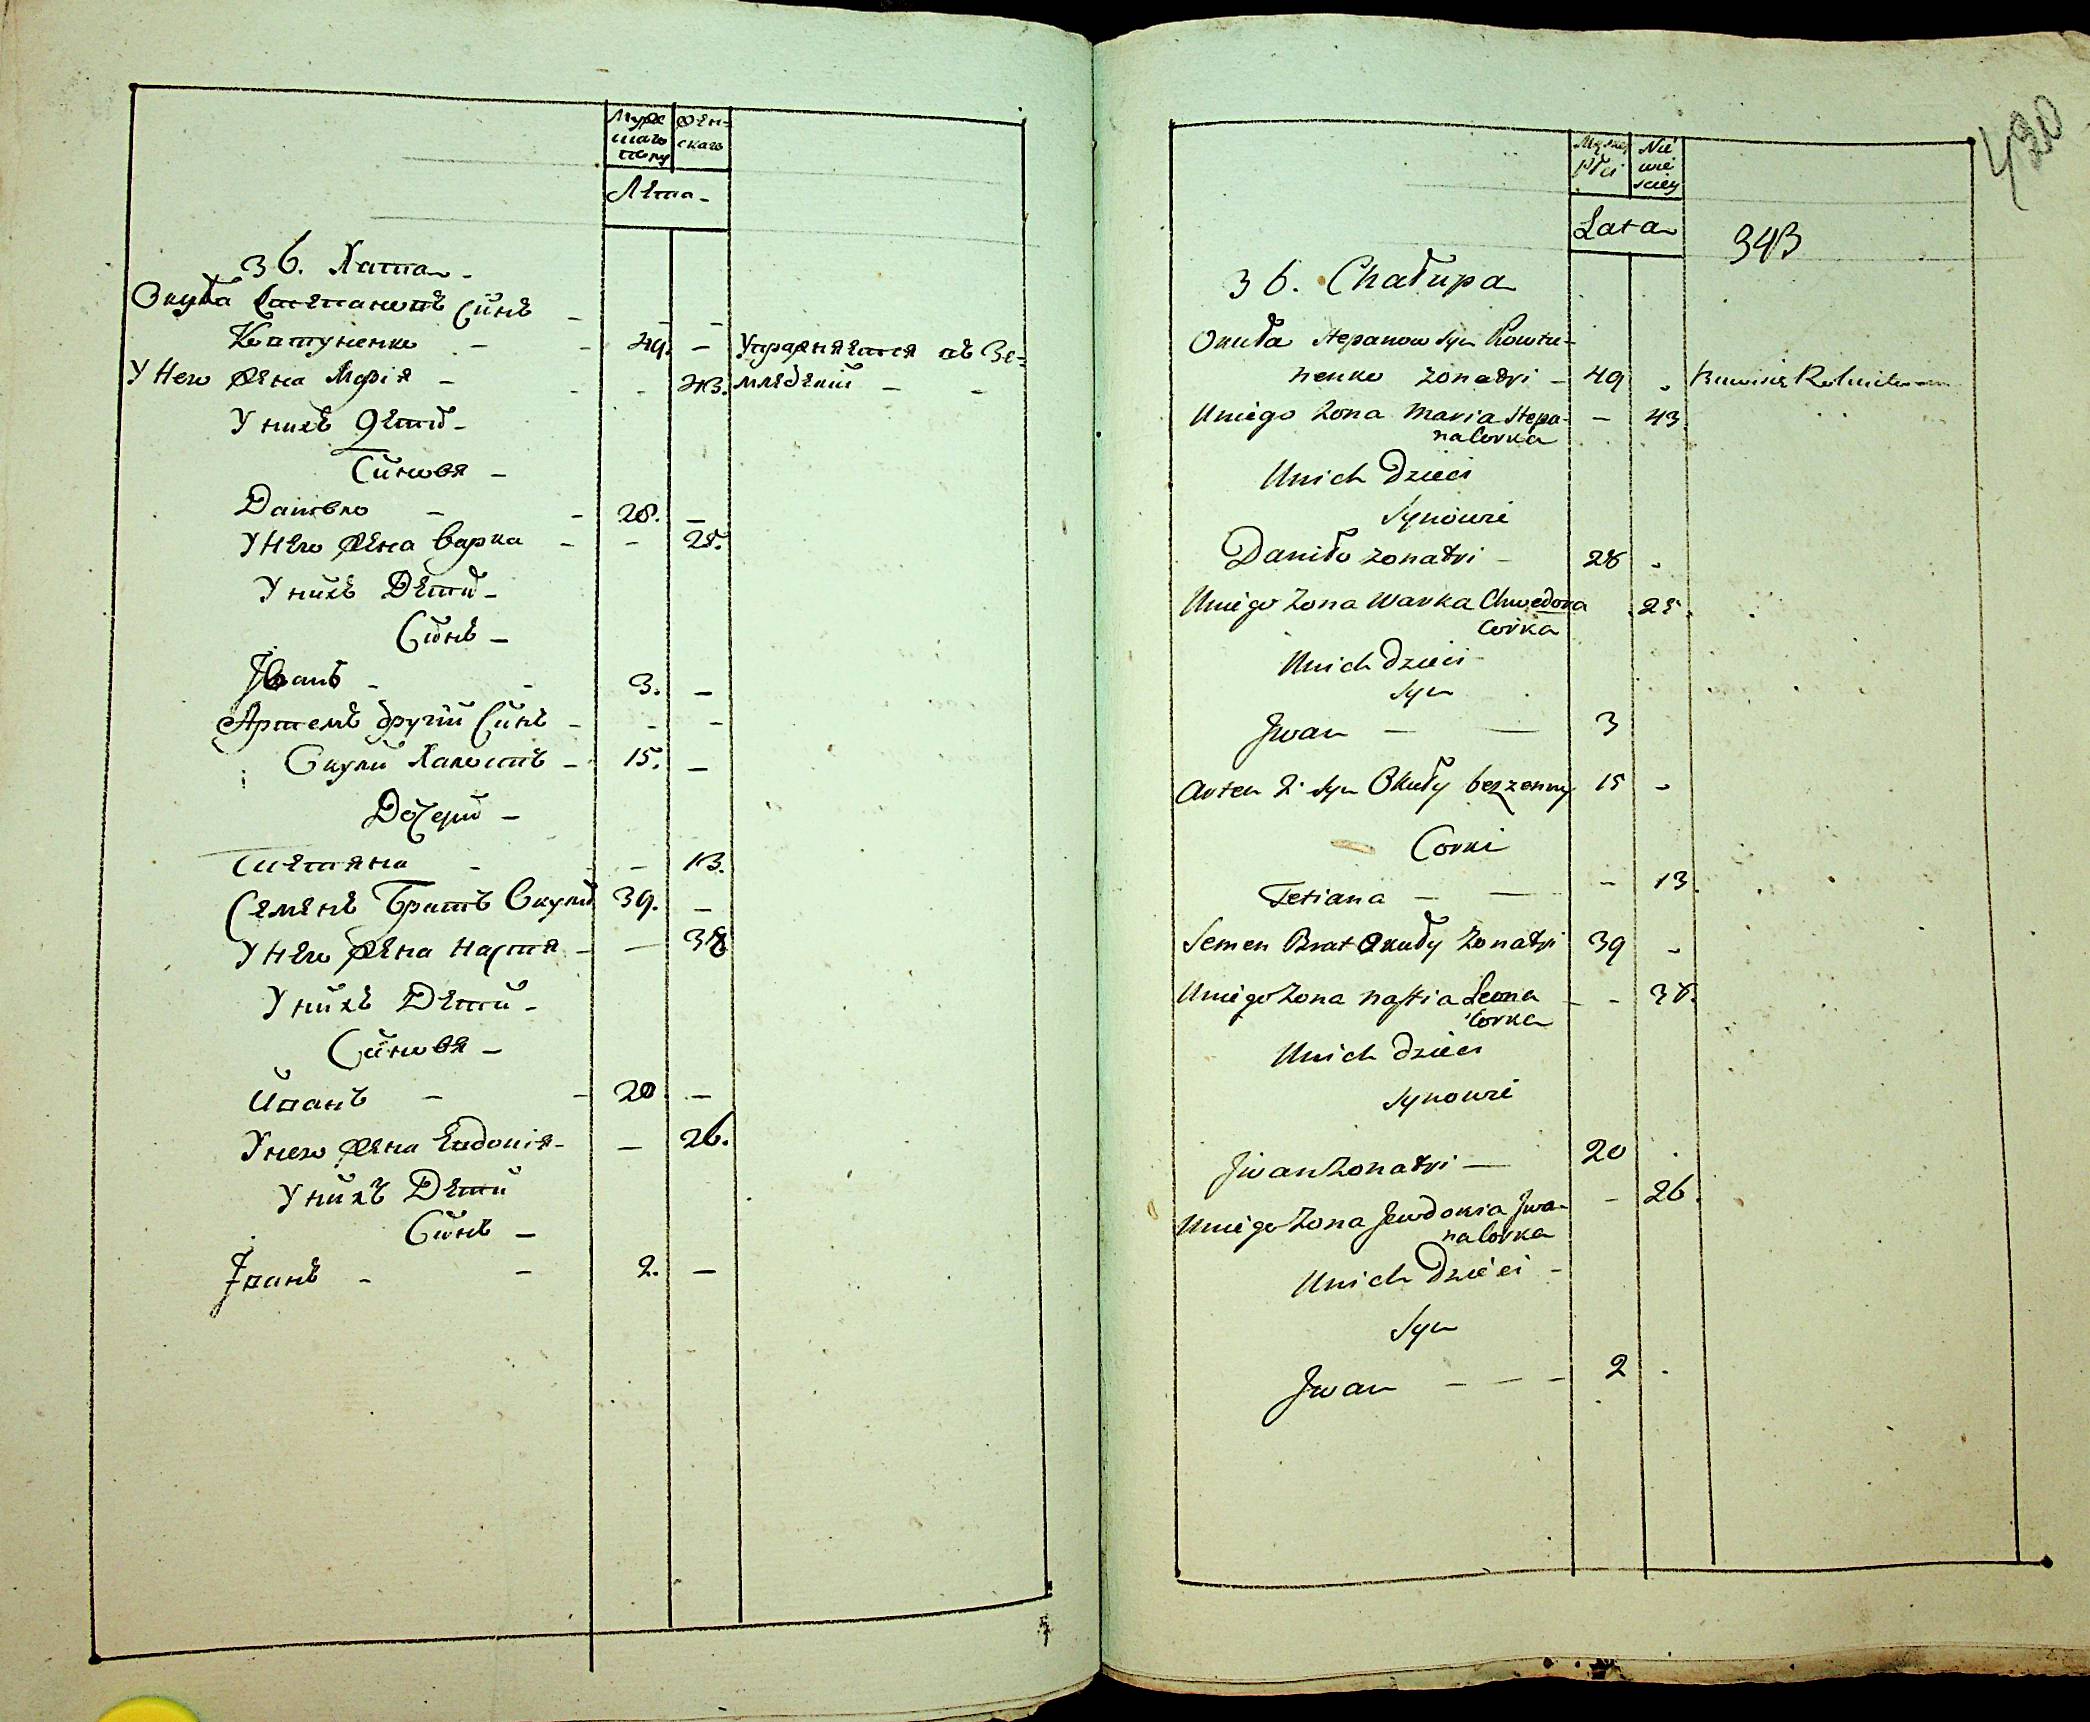 Муже
скаго
полу
Жен-
скаго
Лета -
36. Хата -
Окула Степановъ Сынъ -
Ковтуненко - - 49. - Упражняется въ Зе-
У Него Жена Марія - - - 43. мледелии - -
У нихъ Дети -
Синовя -
Данило - - 28. -
У Него Жена Варка - - 25.
У нихъ Дети -
Синъ -
Іванъ - - 3. -
Артемъ другій Синъ - - -
Окули Халостъ - 15. -
Дочери -
Тетяна - - - 13.
Семенъ Братъ Окули 39. -
У Него Жена Настя - - 38
У нихъ Дети -
Синовя -
Иванъ - - 20. -
У него Жена Евдокія - - 26.
У нихъ Дети
Синъ -
Іванъ - - 2. -
430
Męzkiey
Płci
Nie
wie
sciey
Lata
343
36. Chałupa
Okuła Stepanow Syn Kowtu-
nenko Zonaty - 49 -
Uniego Zona Maria Stepa- - 43.
na Corka
Unich Dzieci
Synowie
Daniło Zonaty - 28 -
Uniego Zona Warka Chwedora 25.
Corka
Unich Dzieci -
Syn
Jwan - - 3
Artem 2. Syn Okuły bezzenny 15 -
Corki
Tetiana - - - 13.
Semen Brat Okuły Zonaty 39 -
Uniego Zona Nastia Leona - - 38.
Corka
Unich Dzieci
Synowie
Jwan Zonaty - 20 .
Uniego Zona Jewdokia Jwa- - 26.
na Corka
Unich Dzieci -
Syn
Jwan - - - 2 .